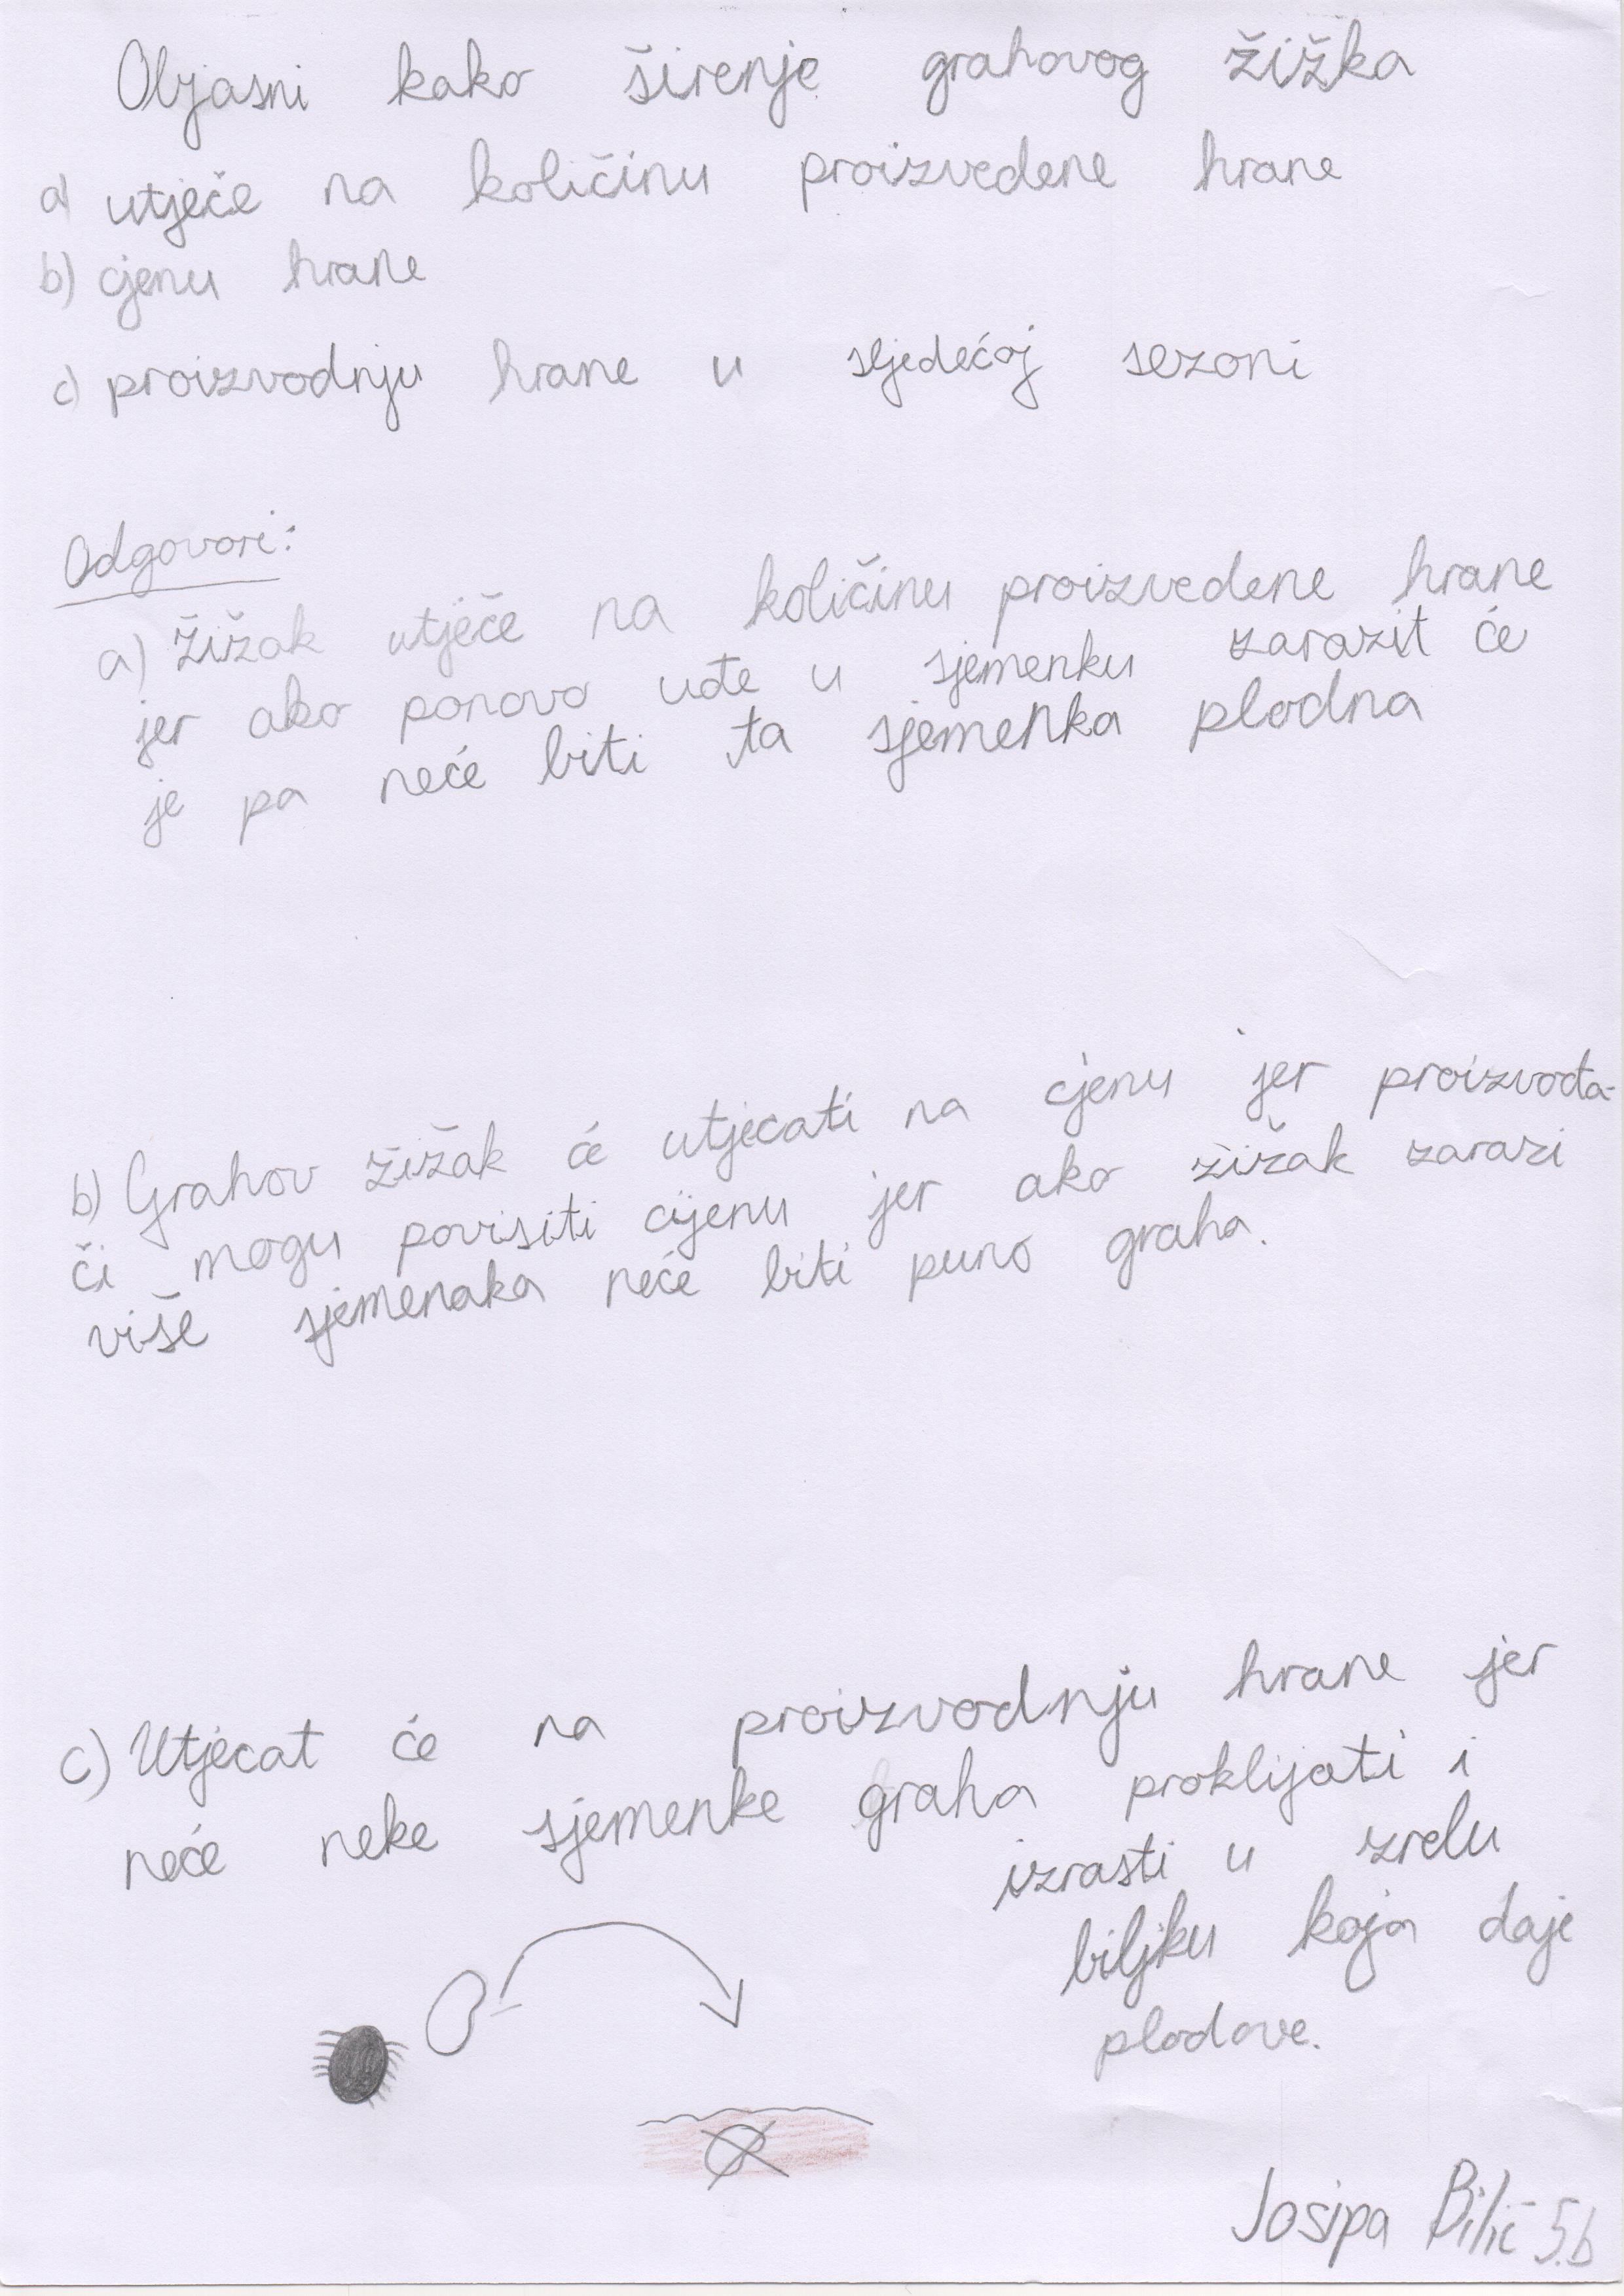 Objasni kako širenje grahovog žižka
a) utječe na količinu proizvedene hrane
b) cjenu hrane
c) proizvodnju hrane u sljedećoj sezoni
Odgovori:
a) Žižak utječe na količinu proizvedene hrane
jer ako ponovo uđe u sjemenku zarazit će
je pa neće biti ta sjemenka plodna
b) Grahov žižak će utjecati na cjenu jer proizvođa-
či mogu povisiti cijenu jer ako žižak zarazi
više sjemenaka neće biti puno graha.
c) Utjecat će na proizvodnju hrane jer
neće neke sjemenke graha proklijati i
izrasti u zrelu
biljku koja daje
plodove.
Josipa Bilić 5.b